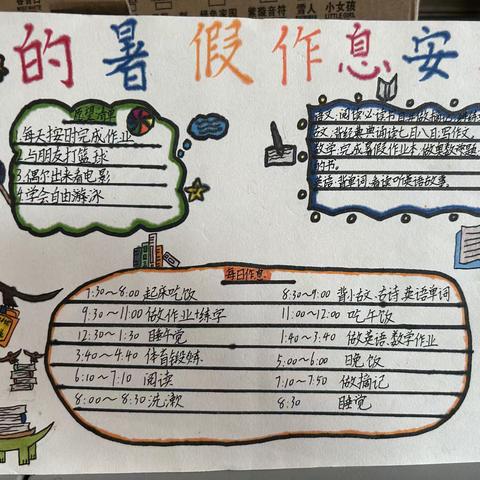 的暑假作息安
1.每天按时完成作业
2.与朋友打篮球
3.偶尔出来看电影
4.学会自由游泳
语文:阅读必读书目
背经典诵读七月八月,写作文。
数学:完成暑假作业本,做奥数题
的书。
英语:背单词,看读听英语故事。
每日作息
7:30～8:00 起床吃饭
8:30～9:00 背小古文、古诗、英语单词
9:30～11:00 做作业+练字
11:00～12:00 吃午饭
12:30～1:30 睡午觉
1:40～3:40 做英语、数学作业
3:40～4:40 体育锻炼
5:00～6:00 晚饭
6:10～7:10 阅读
7:10～7:50 做摘记
8:00～8:30 洗漱
8:30 睡觉